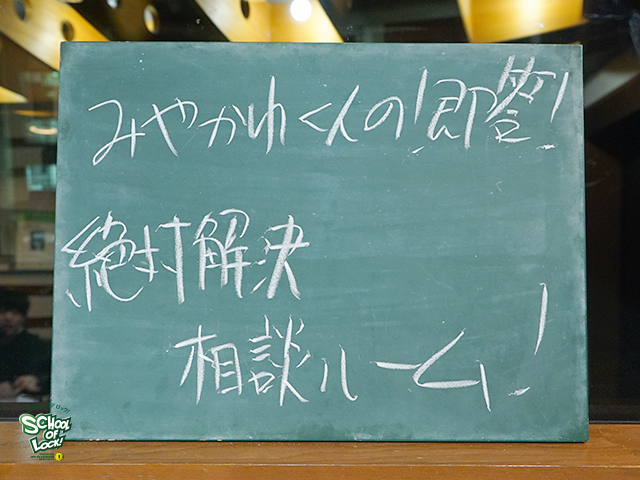 みやかわくんの!即答!
絶対解決
相談ルーム!
SCHOOL
OF
LOCK!